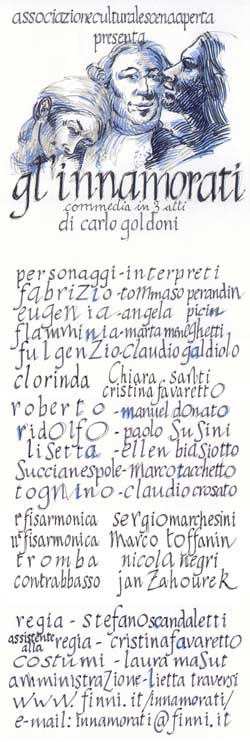 associazioneculturalescenaaperta
presenta
gl'innamorati
commedia in 3 atti
di carlo goldoni
personaggi-interpreti
fabrizio-tommaso perandin
eugenia-angela picin
flamminia-marta meneghetti
fulgenzio-claudio galdiolo
clorinda Chiara santi
cristina favaretto
roberto-manuel donato
ridolfo-paolo Susini
lisetta-ellen biasiotto
Succianespole-marcotacchetto
tognino-claudio crosato
Iª fisarmonica sergio marchesini
IIª fisarmonica Marco toffanin
tromba nicola negri
contrabbasso jan Zahourek
regia - stefanoscandaletti
assistente alla regia - cristinafavaretto
costumi-laura masut
amministrazione-lietta traversi
www.finni.it/innamorati/
e-mail:innamorati@finni.it